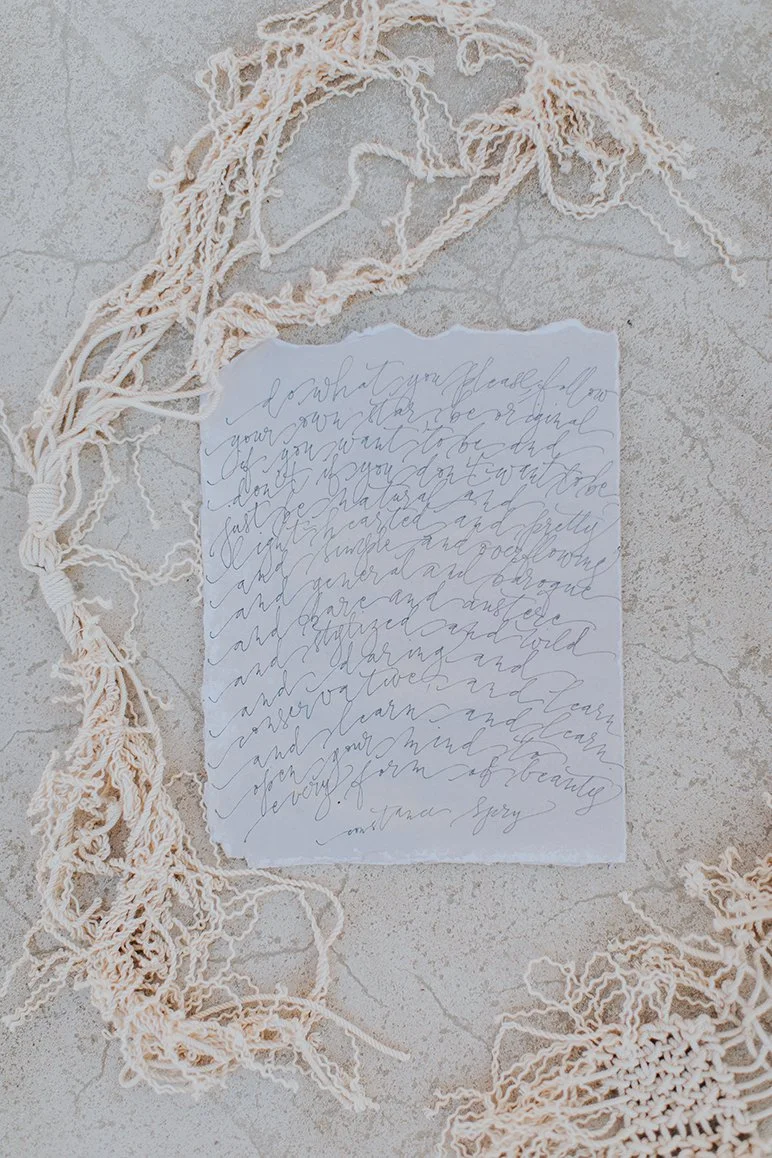 do what you please, follow
your own star; be original
if you want to be and
don't if you don't want to be
just be natural and
light-hearted and pretty
and simple and overflowing
and general and baroque
and bare and austere
and stylized and wild
and daring and
conservative, and learn
and learn and learn
open your mind to
every form of beauty
constance Spry